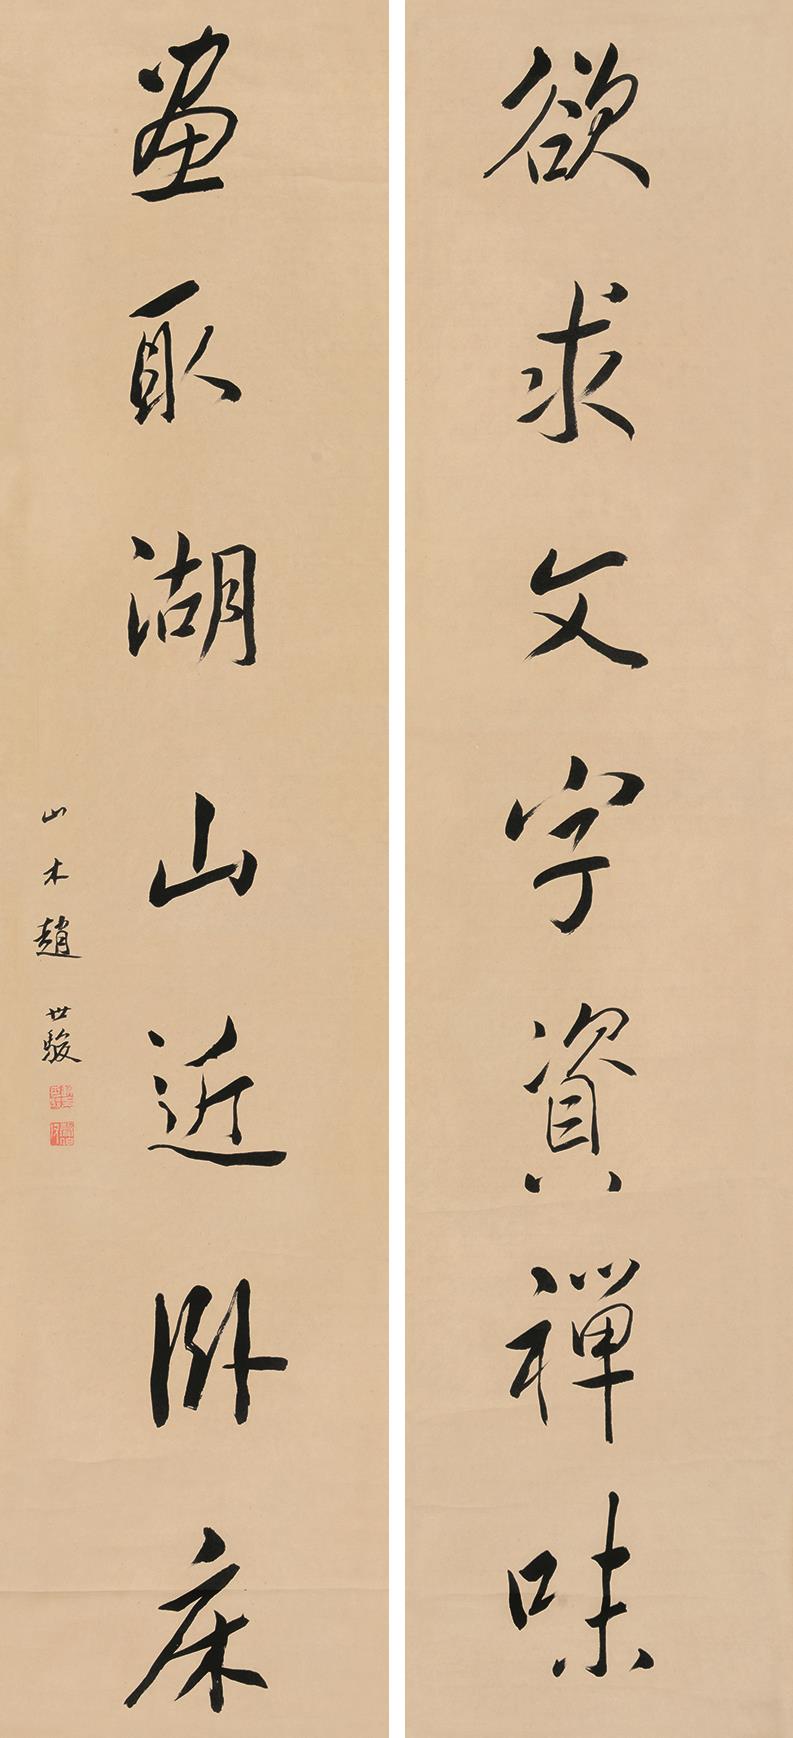 欲求文字資禪味
畫取湖山近卧床
山木趙世駿